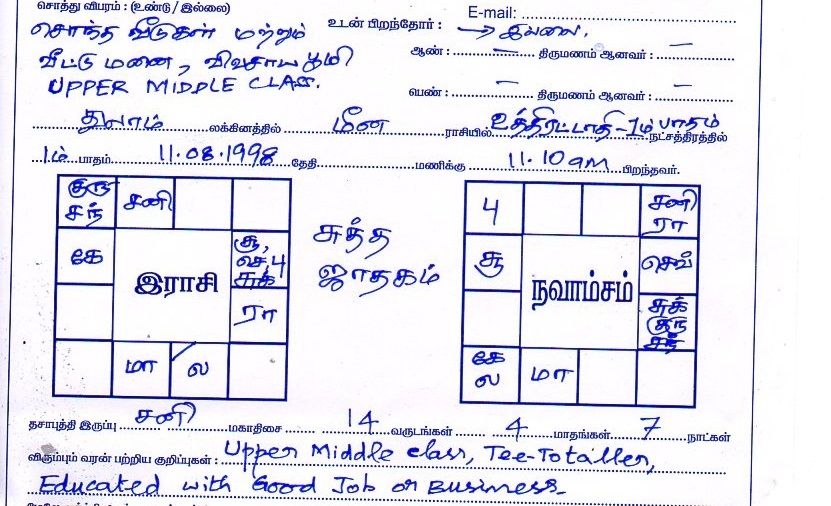 சொத்து விபரம் : (உண்டு / இல்லை)
E-mail:
சொந்த வீடுகள் மற்றும்
உடன் பிறந்தோர் : → இல்லை.
வீட்டு மனை, விவசாய பூமி
ஆண் : — திருமணம் ஆனவர் : —
UPPER MIDDLE CLASS.
பெண் : — திருமணம் ஆனவர் : —
துலாம் லக்கினத்தில் மீன ராசியில் உத்திரட்டாதி-1ம் பாதம் நட்சத்திரத்தில்
1ம் பாதம் 11.08.1998 தேதி மணிக்கு 11.10am பிறந்தவர்.
குரு சந் சனி
கே சூ, செ, 4 சுக்
இராசி
ரா
மா ல
சுத்த
ஜாதகம்
4 சனி ரா
சூ செவ்
நவாம்சம்
சுக் குரு சந்
கே ல மா
தசாபுத்தி இருப்பு சனி மகாதிசை 14 வருடங்கள் 4 மாதங்கள் 7 நாட்கள்
விரும்பும் வரன் பற்றிய குறிப்புகள் : Upper Middle class, Tee-Totaller,
Educated with Good Job or Business-